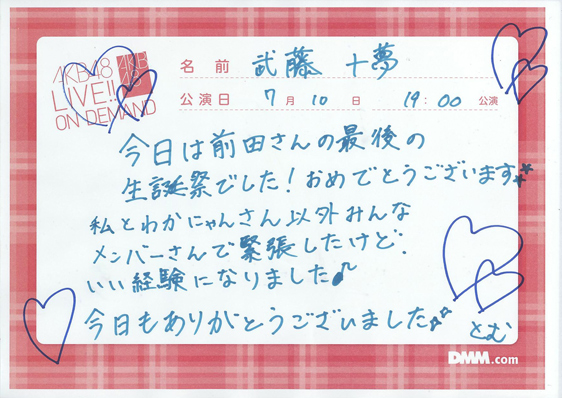 AKB48
LIVE!!
ON DEMAND
AKB
48
名前 武藤 十夢
公演日 7月10日 19:00 公演
今日は前田さんの最後の
生誕祭でした!おめでとうございます**
私とわかにゃんさん以外みんな
メンバーさんで緊張したけど、
いい経験になりました♪
今日もありがとうございました☆☆
とむ
DMM.com